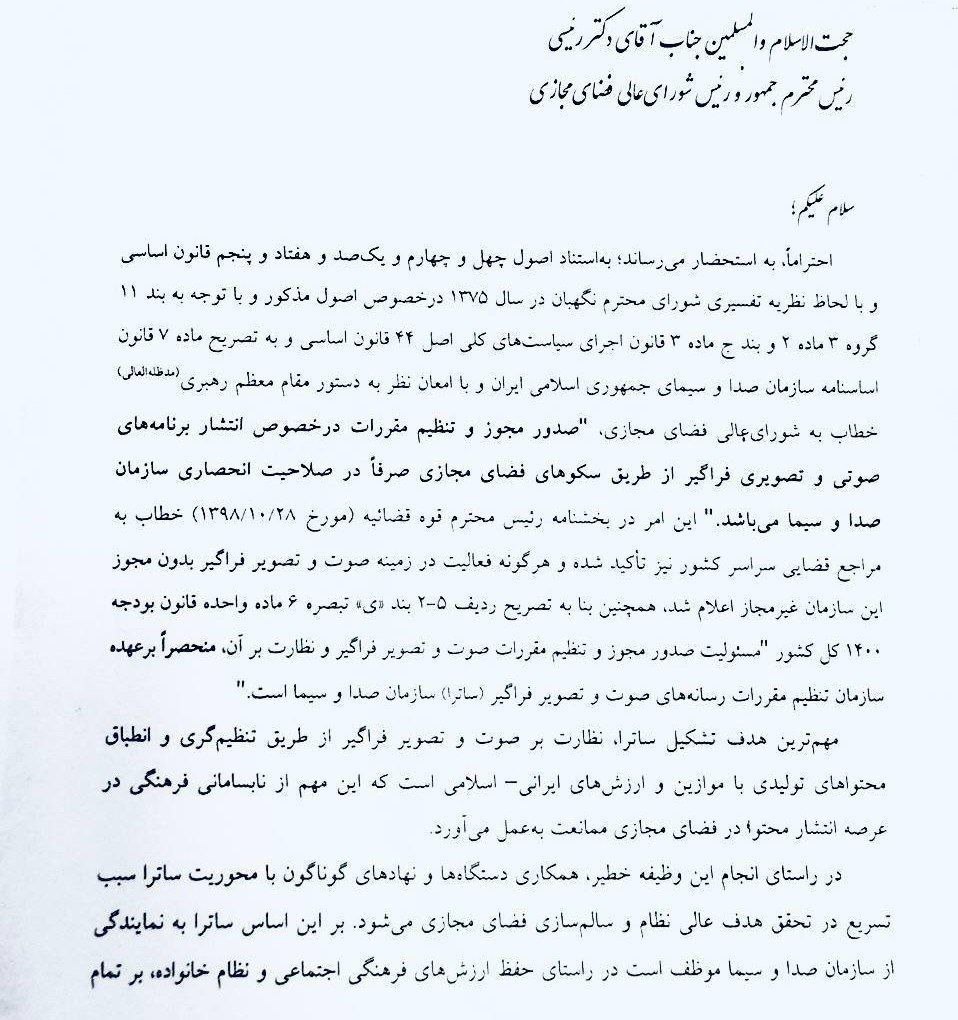 حجت‌الاسلام والمسلمین جناب آقای دکتر رئیسی
رئیس محترم جمهور و رئیس شورای عالی فضای مجازی
سلام علیکم؛
احتراماً، به استحضار می‌رساند؛ به‌استناد اصول چهل و چهارم و یک‌صد و هفتاد و پنجم قانون اساسی
و با لحاظ نظریه تفسیری شورای محترم نگهبان در سال ۱۳۷۵ درخصوص اصول مذکور و با توجه به بند ۱۱
گروه ۳ ماده ۲ و بند ج ماده ۳ قانون اجرای سیاست‌های کلی اصل ۴۴ قانون اساسی و به تصریح ماده ۷ قانون
اساسنامه سازمان صدا و سیمای جمهوری اسلامی ایران و با امعان نظر به دستور مقام معظم رهبری(مدظله‌العالی)
خطاب به شورای‌عالی فضای مجازی، "صدور مجوز و تنظیم مقررات درخصوص انتشار برنامه‌های
صوتی و تصویری فراگیر از طریق سکوهای فضای مجازی صرفاً در صلاحیت انحصاری سازمان
صدا و سیما می‌باشد." این امر در بخشنامه رئیس محترم قوه قضائیه (مورخ ۱۳۹۸/۱۰/۲۸) خطاب به
مراجع قضایی سراسر کشور نیز تأکید شده و هرگونه فعالیت در زمینه صوت و تصویر فراگیر بدون مجوز
این سازمان غیرمجاز اعلام شد، همچنین بنا به تصریح ردیف ۵-۲ بند «ی» تبصره ۶ ماده واحده قانون بودجه
۱۴۰۰ کل کشور "مسئولیت صدور مجوز و تنظیم مقررات صوت و تصویر فراگیر و نظارت بر آن، منحصراً برعهده
سازمان تنظیم مقررات رسانه‌های صوت و تصویر فراگیر (ساترا) سازمان صدا و سیما است."
مهم‌ترین هدف تشکیل ساترا، نظارت بر صوت و تصویر فراگیر از طریق تنظیم‌گری و انطباق
محتواهای تولیدی با موازین و ارزش‌های ایرانی– اسلامی است که این مهم از نابسامانی فرهنگی در
عرصه انتشار محتوا در فضای مجازی ممانعت به‌عمل می‌آورد.
در راستای انجام این وظیفه خطیر، همکاری دستگاه‌ها و نهادهای گوناگون با محوریت ساترا سبب
تسریع در تحقق هدف عالی نظام و سالم‌سازی فضای مجازی می‌شود. بر این اساس ساترا به نمایندگی
از سازمان صدا و سیما موظف است در راستای حفظ ارزش‌های فرهنگی اجتماعی و نظام خانواده، بر تمام